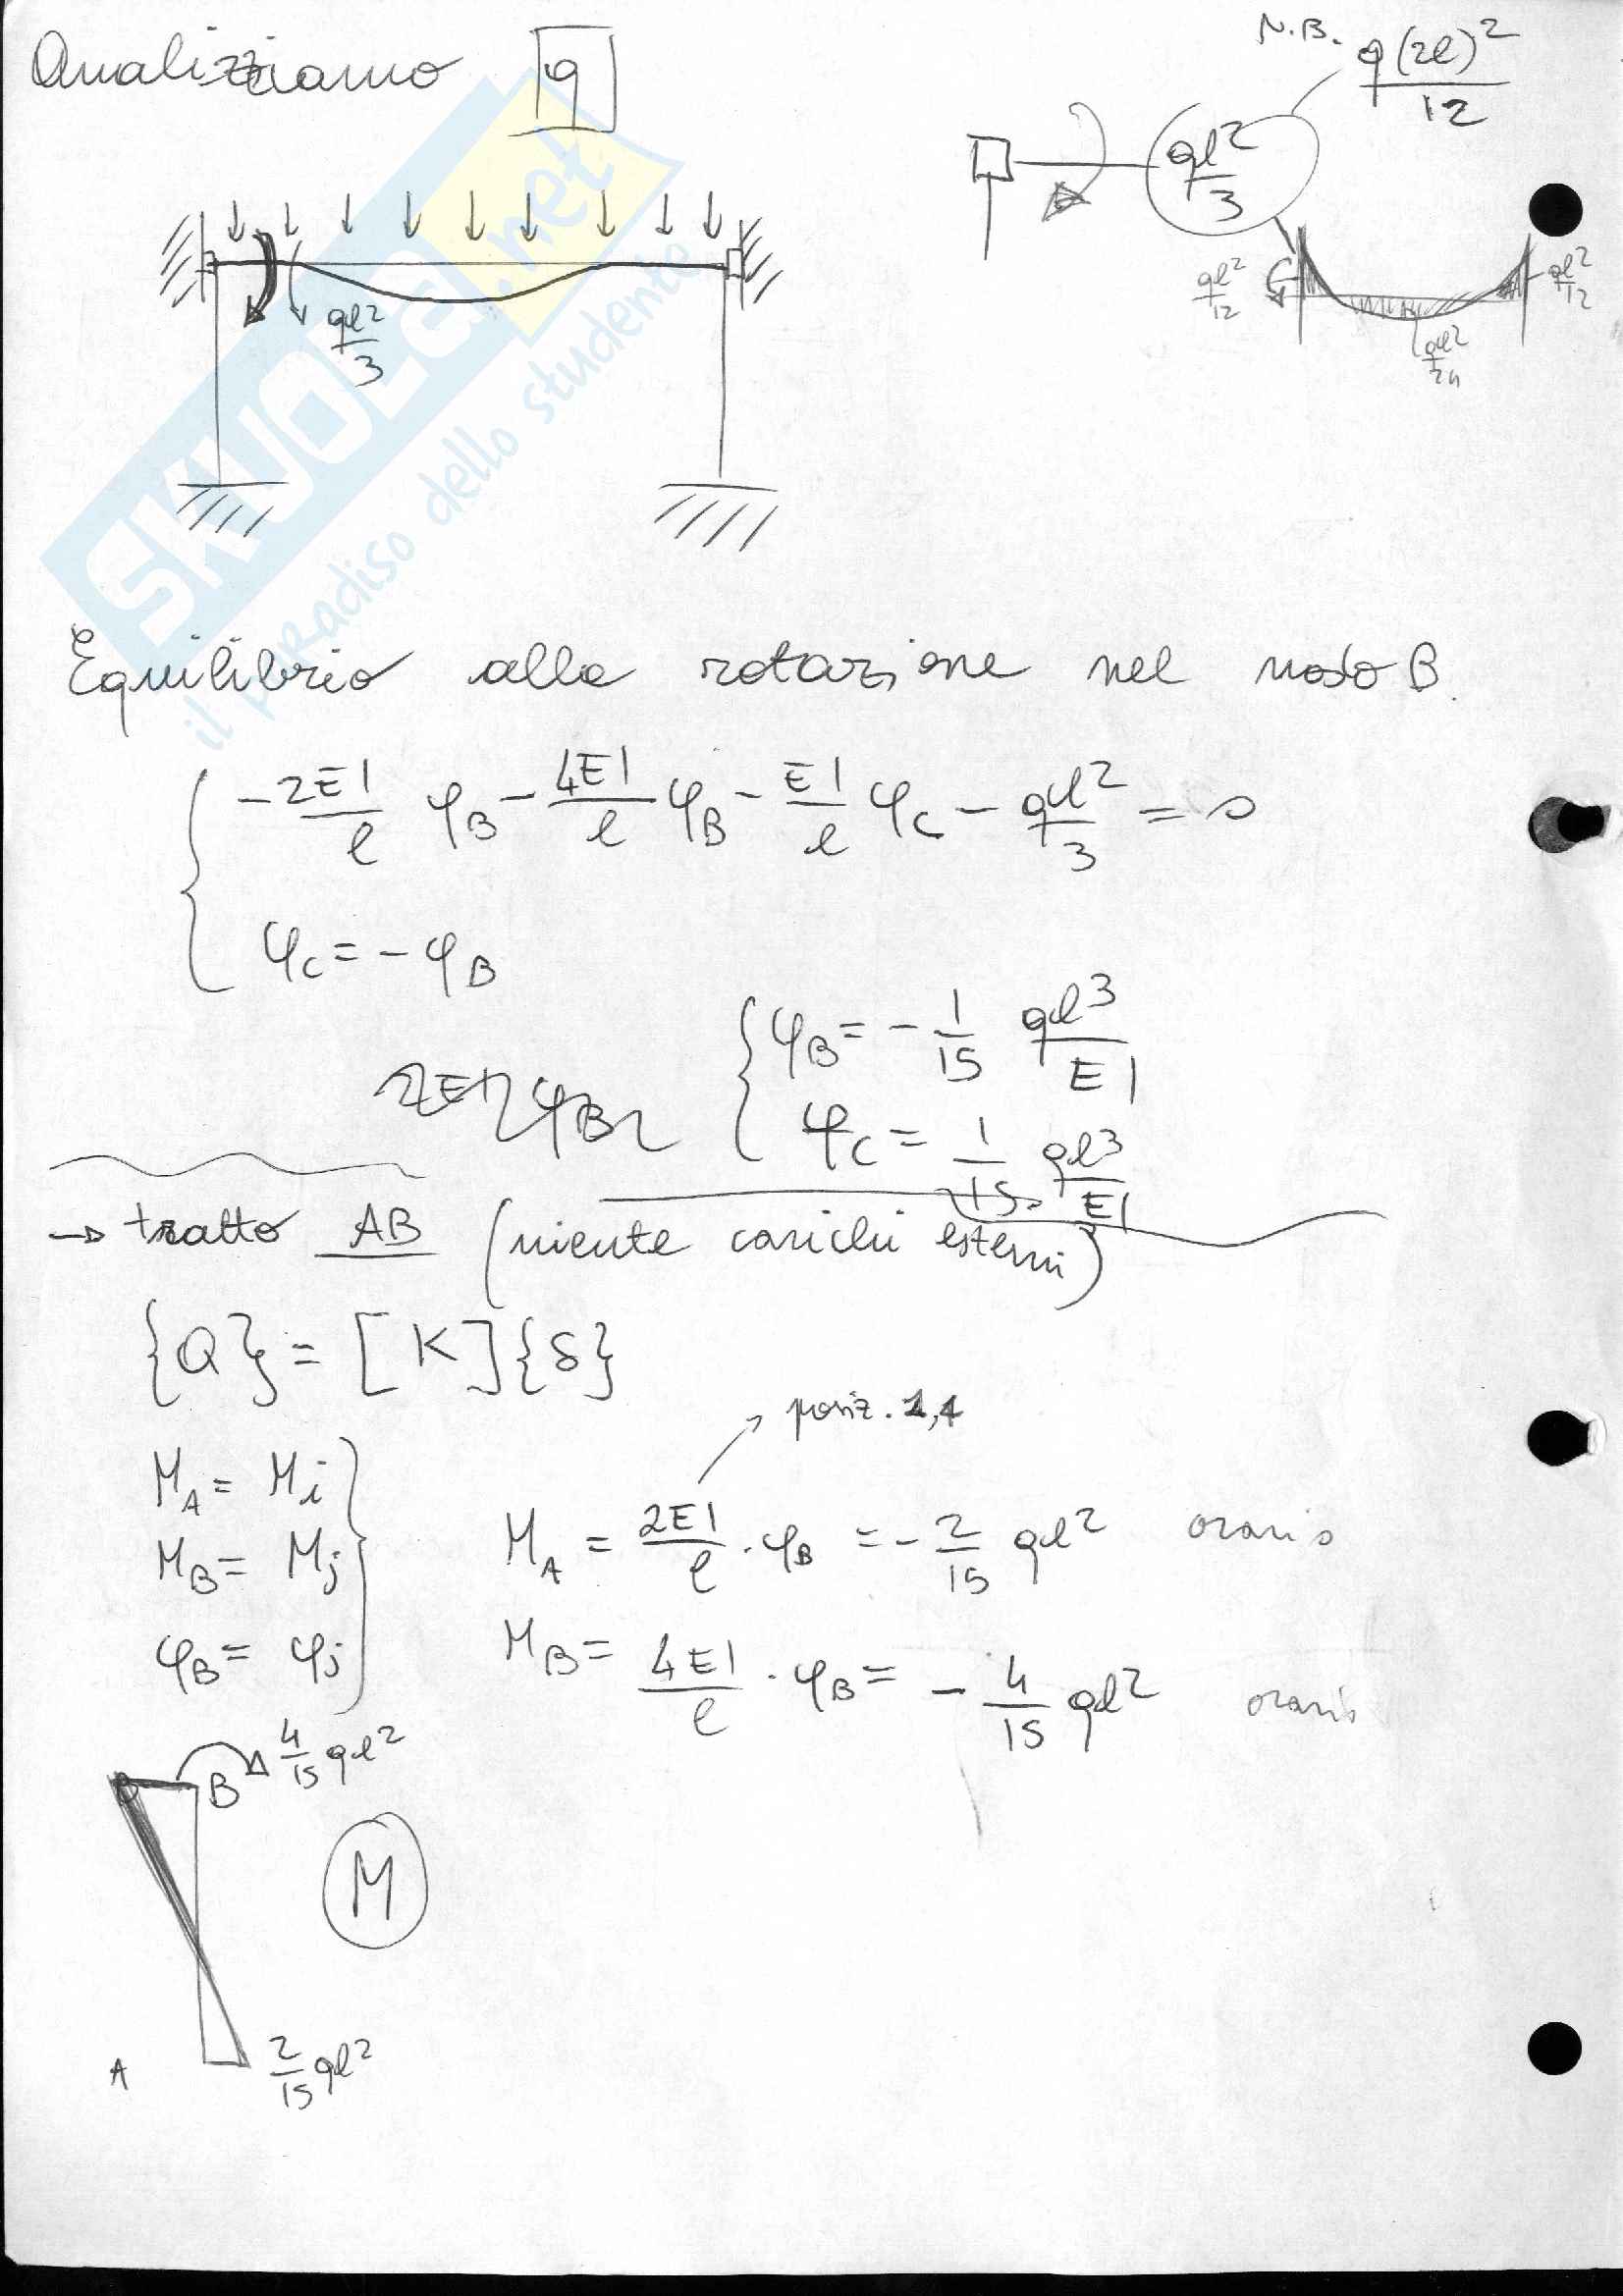 Analizziamo q
N.B. q(2l)²/12
ql²/3
ql²/3
ql²/12
ql²/12
ql²/24
SKUOLA.net
il paradiso dello studente
Equilibrio alla rotazione nel nodo B.
{ -2EI/l φB - 4EI/l φB - EI/l φC - ql²/3 = 0
φC = -φB
{ φB = -1/15 ql³/EI
φC = 1/15 ql³/EI
→ tratto AB (niente carichi esterni)
{Q} = [K]{δ}
posiz. 1,1
MA = Mi
MB = Mj
φB = φj
MA = 2EI/l · φB = -2/15 ql² orario
MB = 4EI/l · φB = -4/15 ql² orario
4/15 ql²
B
M
A
2/15 ql²